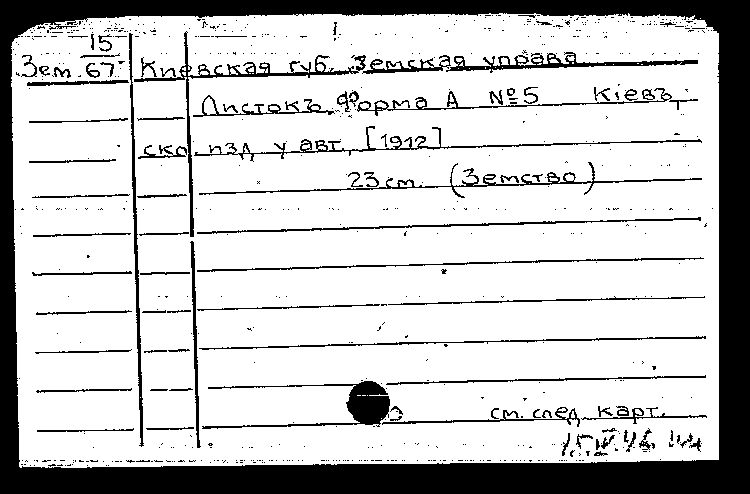 Зем. 15/67 Киевская губ. Земская управа
Листокъ. Форма А №5 Кіевъ,
ско. изд у авт., [1912]
23 см. (Земство)
см. след. карт.
15.IV.46